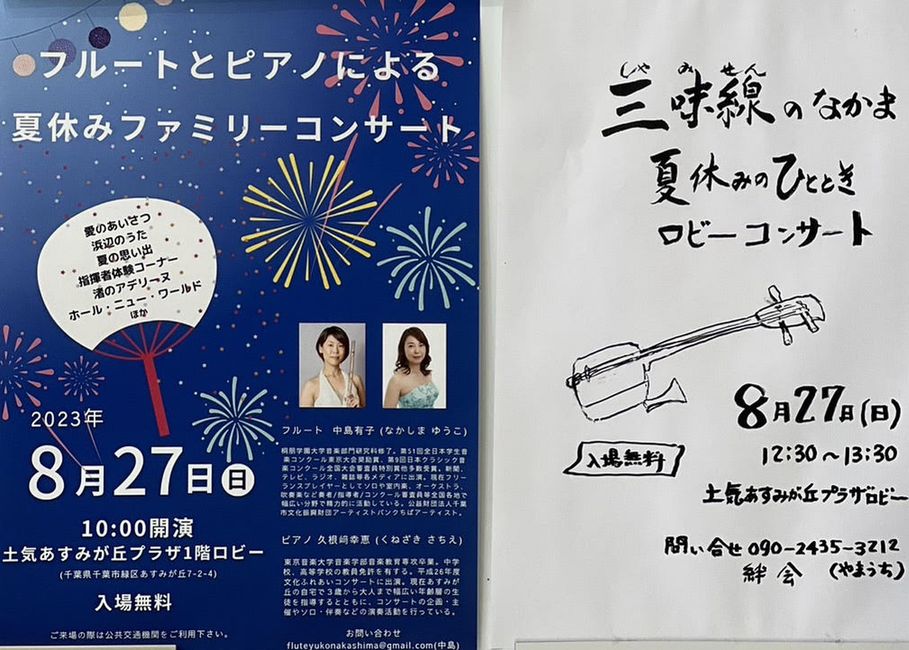 フルートとピアノによる
夏休みファミリーコンサート
愛のあいさつ
浜辺のうた
夏の思い出
指揮者体験コーナー
渚のアデリーヌ
ホール・ニュー・ワールド
ほか
2023年
8月27日日
10:00開演
土気あすみが丘プラザ1階ロビー
(千葉県千葉市緑区あすみが丘7-2-4)
入場無料
ご来場の際は公共交通機関をご利用下さい。
フルート 中島有子 (なかしま ゆうこ)
桐朋学園大学音楽部門研究科修了。第51回全日本学生音
楽コンクール東京大会奨励賞、第9回日本クラシック音
楽コンクール全国大会審査員特別賞他多数受賞。新聞、
テレビ、ラジオ、雑誌等各メディアに出演。現在フリー
ランスプレイヤーとしてソロや室内楽、オーケストラ、
吹奏楽など奏者/指導者/コンクール審査員等全国各地で
幅広い分野で精力的に活動している。公益財団法人千葉
市文化振興財団アーティストバンクちばアーティスト。
ピアノ 久根﨑幸恵 (くねざき さちえ)
東京音楽大学音楽学部音楽教育専攻卒業。中学
校、高等学校の教員免許を有する。平成26年度
文化ふれあいコンサートに出演。現在あすみが
丘の自宅で３歳から大人まで幅広い年齢層の生
徒を指導するとともに、コンサートの企画・主
催やソロ・伴奏などの演奏活動を行っている。
お問い合わせ
fluteyukonakashima@gmail.com(中島)
しゃみせん
三味線のなかま
夏休みのひととき
ロビーコンサート
8月27日(日)
入場無料
12:30～13:30
土気あすみが丘プラザロビー
問い合せ 090-2435-3212
絆会 (やまうち)